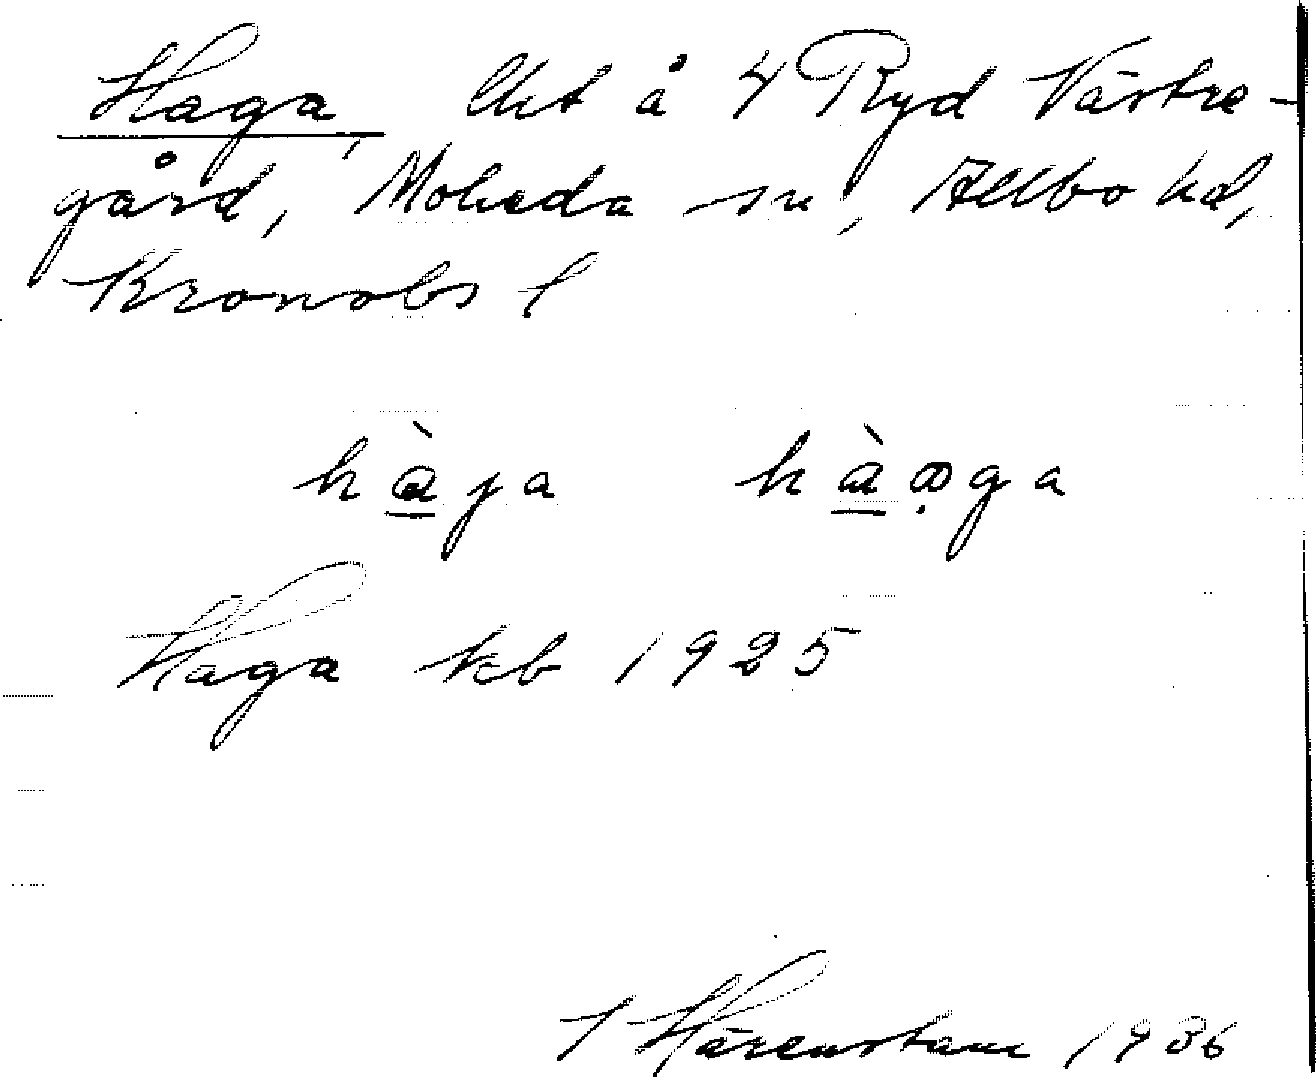 Haga, lht å 4 Ryd Västre-
gård, Moheda sn, Allbo hd,
Kronobs l
hàja hàaga
Haga kb 1925
J Härenstam 1936